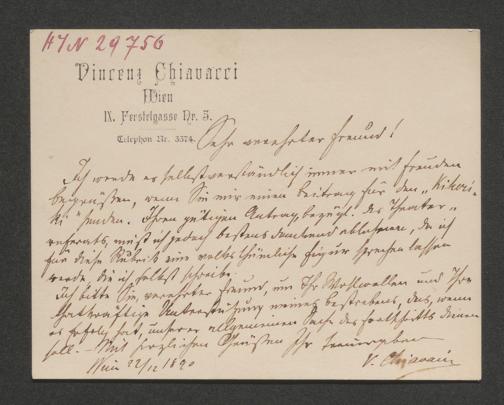 HIN 29756
Vincenz Chiavacci
Wien
IX. Ferstelgasse Nr. 5.
Telephon Nr. 3374.
Sehr verehrter Freund!
Ich werde es selbstverständlich immer mit Freuden
begrüßen, wenn Sie mir einen Beitrag für den „Kikeri-
ki" senden. Ihren gütigen Antrag bezügl. des Theater-
referats, muß ich jedoch bestens dankend ablehnen, da ich
für diese Rubrik eine volksthümliche Figur sprechen lassen
werde, die ich selbst schreibe.
Ich bitte Sie, verehrter Freund, um Ihr Wohlwollen und Ihre
thatkräftige Unterstützung meines Bestrebens, das, wenn
es Erfolg hat, unserer allgemeinen Sache des Fortschritts dienen
soll. – Mit herzlichen Grüßen Ihr
Wien 22/12 1890 V. Chiavacci